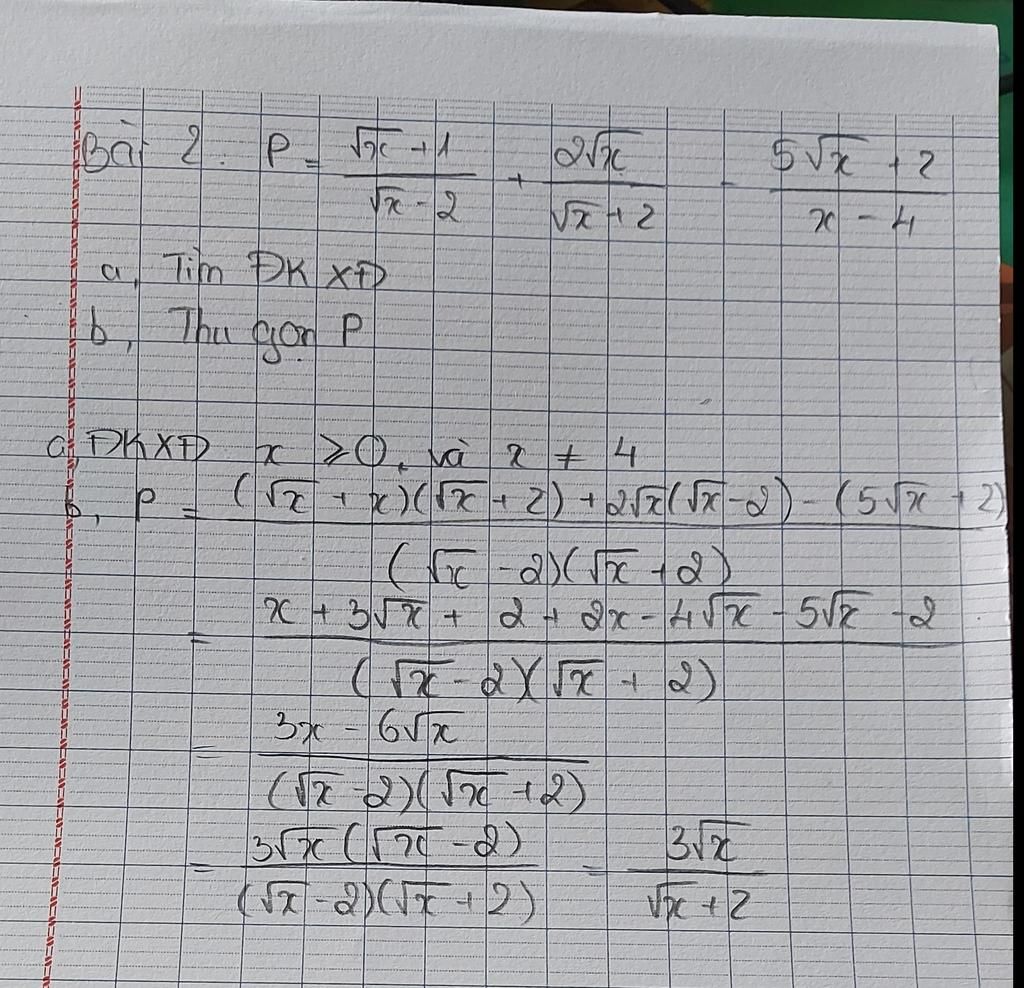 Bài 2. P = (√x + 1)/(√x - 2) + (2√x)/(√x + 2) - (5√x + 2)/(x - 4)
a, Tìm ĐKXĐ
b, Thu gọn P
a, ĐKXĐ x ⩾ 0, và x ≠ 4
b, P = ((√x + x)(√x + 2) + 2√x(√x - 2) - (5√x + 2))/((√x - 2)(√x + 2))
= (x + 3√x + 2 + 2x - 4√x - 5√x - 2)/((√x - 2)(√x + 2))
= (3x - 6√x)/((√x - 2)(√x + 2))
= (3√x(√x - 2))/((√x - 2)(√x + 2)) = (3√x)/(√x + 2)